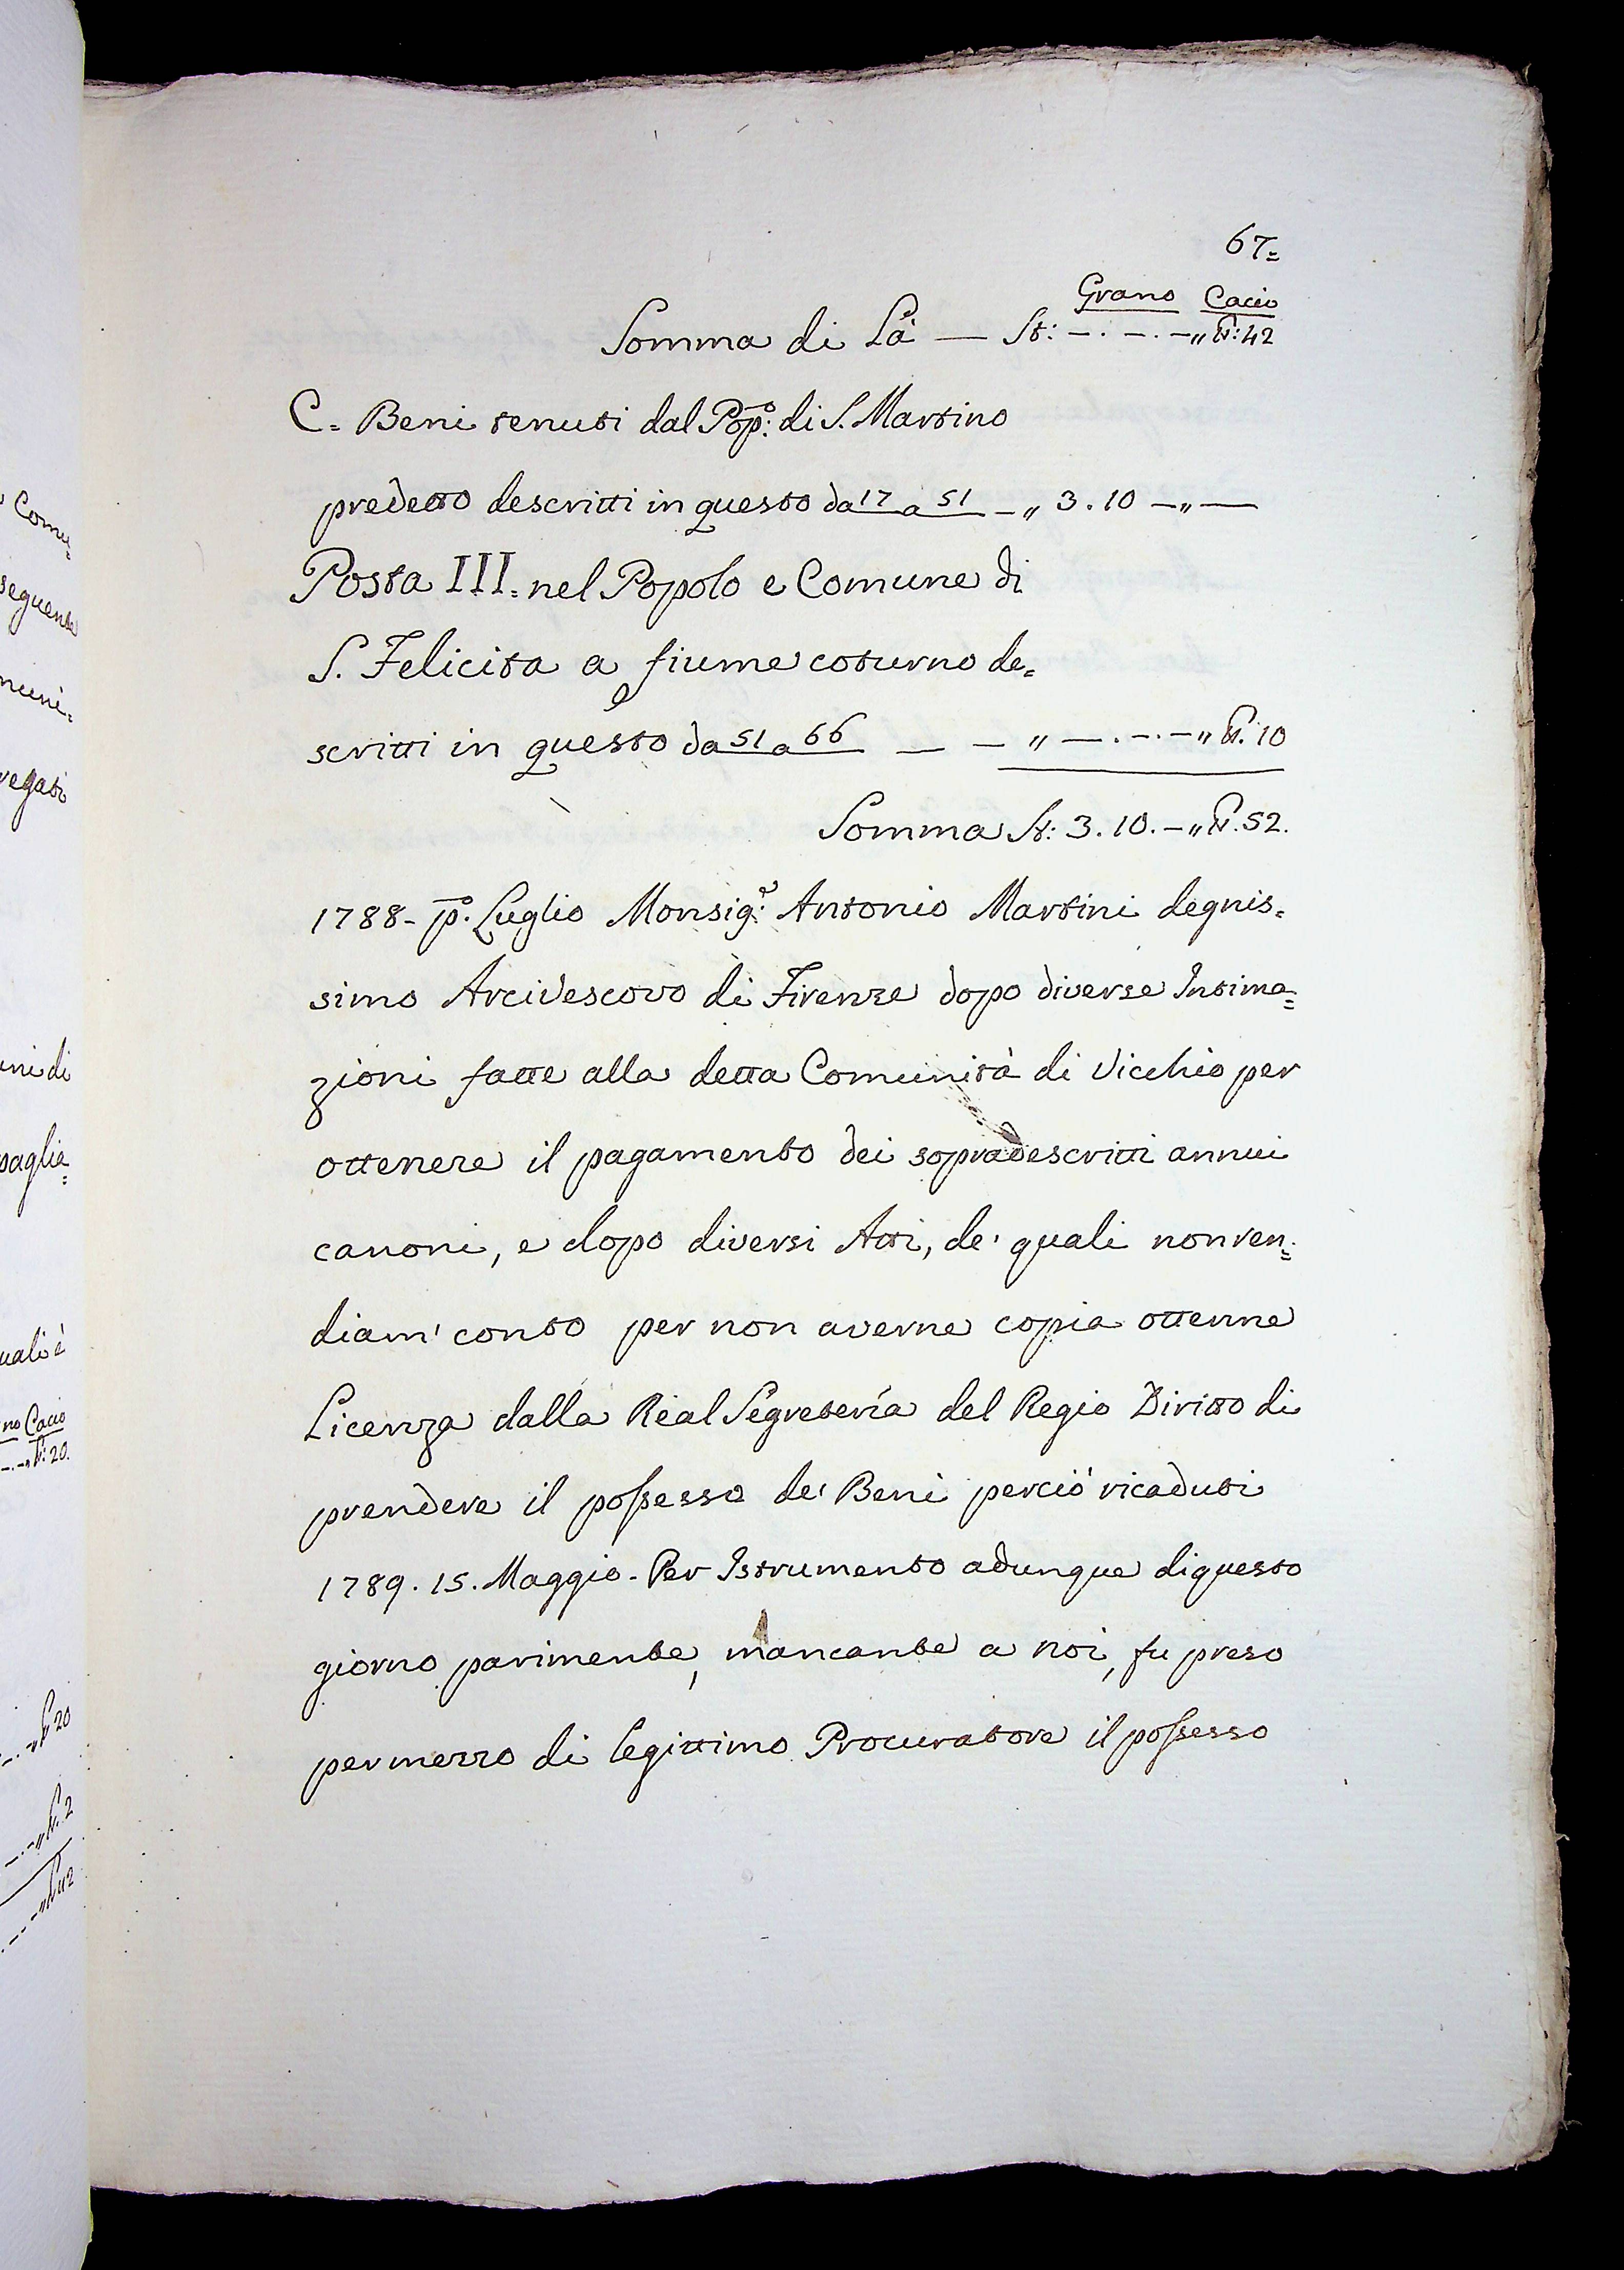 67=
Grano Cacio
Somma di Là — St: — . — . — „ P: 42
C= Beni tenuti dal Pop:º di S. Martino
predetto descritti in questo da 17 a 51 — „ 3 . 10 — „ —
Posta III= nel Popolo e Comune di
S. Felicita a fiume coturno de=
scritti in questo da 51 a 66 — — „ — . — . — „ P. 10
Somma St: 3 . 10 . — „ P. 52.
1788 - pº. Luglio Monsig:r Antonio Martini degnis=
simo Arcivescovo di Firenze dopo diverse Intima=
zioni fatte alla detta Comunità di Vicchio per
ottenere il pagamento dei sopradescritti annui
canoni, e dopo diversi Atti, de' quali non ren=
diam' conto per non averne copia ottenne
Licenza dalla Real Segretería del Regio Diritto di
prendere il possesso de' Beni perciò ricaduti
1789. 15. Maggio - Per Istrumento adunque di questo
giorno parimente, mancante a noi, fu preso
per mezzo di legittimo Procuratore il possesso
Comu=
seguente
muni=
regati
ini di
paglia=
uali è
no Cacio
— . — „ P: 20.
— . — „ P. 20
— . — „ P. 2
— . — „ P. 42